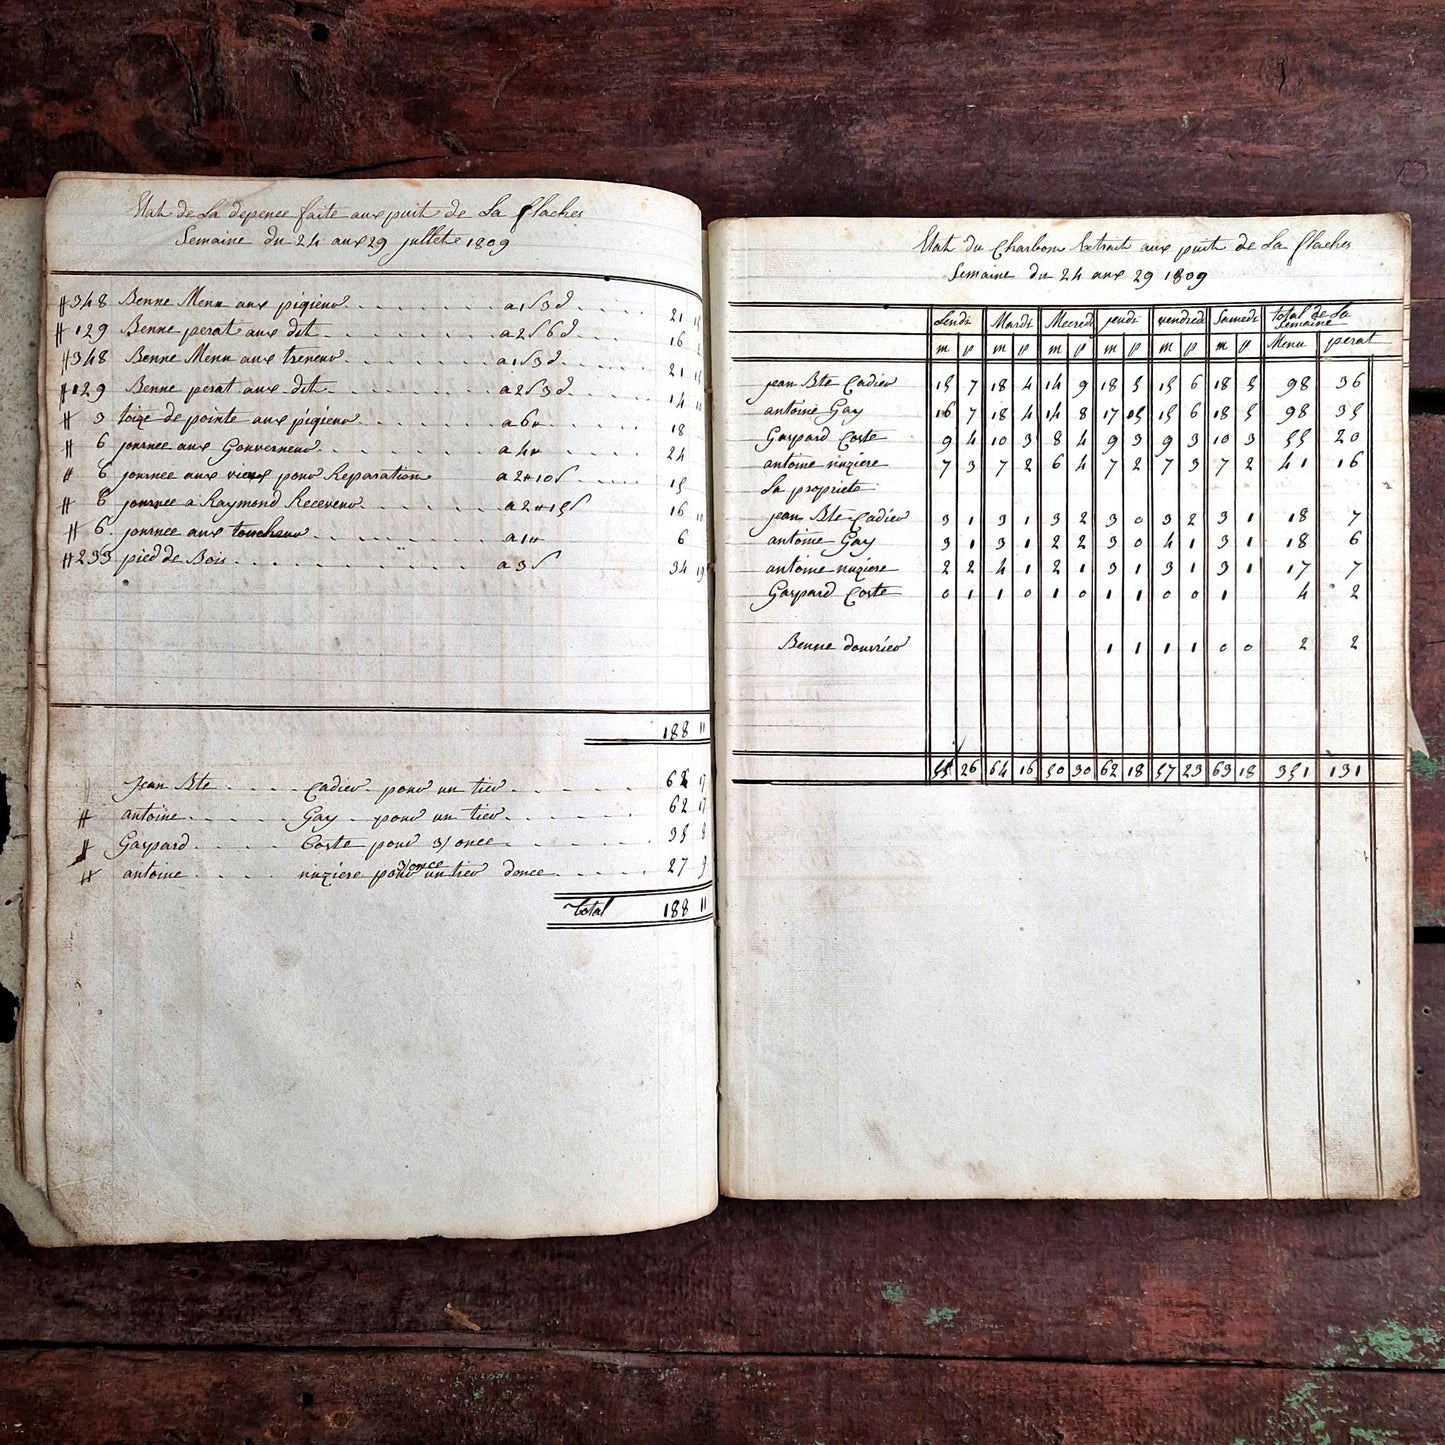 Etat de La depence faite aux puit de La flaches
Semaine du 24 aux 29 jullet 1809
# 348 Benne Menu aux piqieur a 1 s 3 d 21
# 129 Benne perat aux dit a 2 s 6 d 16
# 348 Benne Menu aux treneur a 1 s 3 d 21
# 129 Benne perat aux dit a 2 s 3 d 14 11
# 3 toize de pointe aux piqieur a 6 18
# 6 journee aux Gouverneur a 4 24
# 6 journee aux vieux pour Reparation a 2 # 10 s 15
# 6 journee a Raymond Receveur a 2 # 15 s 16
# 6 journee aux toucheur a 1 6
# 233 pied de Bois a 3 s 34 19
188 11
Jean Bte Cadier pour un tier 62 17
# antoine Gay pour un tier 62 17
# Gaspard Coste pour 3/ once 35 8
3/ once
# antoine nuziere pour un tier donce 27 9
Total 188 11
Etat du Charbon Extrait aux puit de La flaches
Semaine du 24 aux 29 1809
Lendi Mardi Mecredi jeudi vendredi Samedi total de La Semaine
m p m p m p m p m p m p Menu perat
jean Bte Cadier 15 7 18 4 14 9 18 5 15 6 18 5 98 36
antoine Gay 16 7 18 4 14 8 17 05 15 6 18 5 98 35
Gaspard Coste 9 4 10 3 8 4 9 3 9 3 10 3 55 20
antoine nuziere 7 3 7 2 6 4 7 2 7 3 7 2 41 16
La propriete
jean Bte Cadier 3 1 3 1 3 2 3 0 3 2 3 1 18 7
antoine Gay 3 1 3 1 2 2 3 0 4 1 3 1 18 6
antoine nuziere 2 2 4 1 2 1 3 1 3 1 3 1 17 7
Gaspard Coste 0 1 1 0 1 0 1 1 0 0 1 4 2
Benne douvrier 1 1 1 1 0 0 2 2
55 26 64 16 50 30 62 18 57 23 63 18 351 131